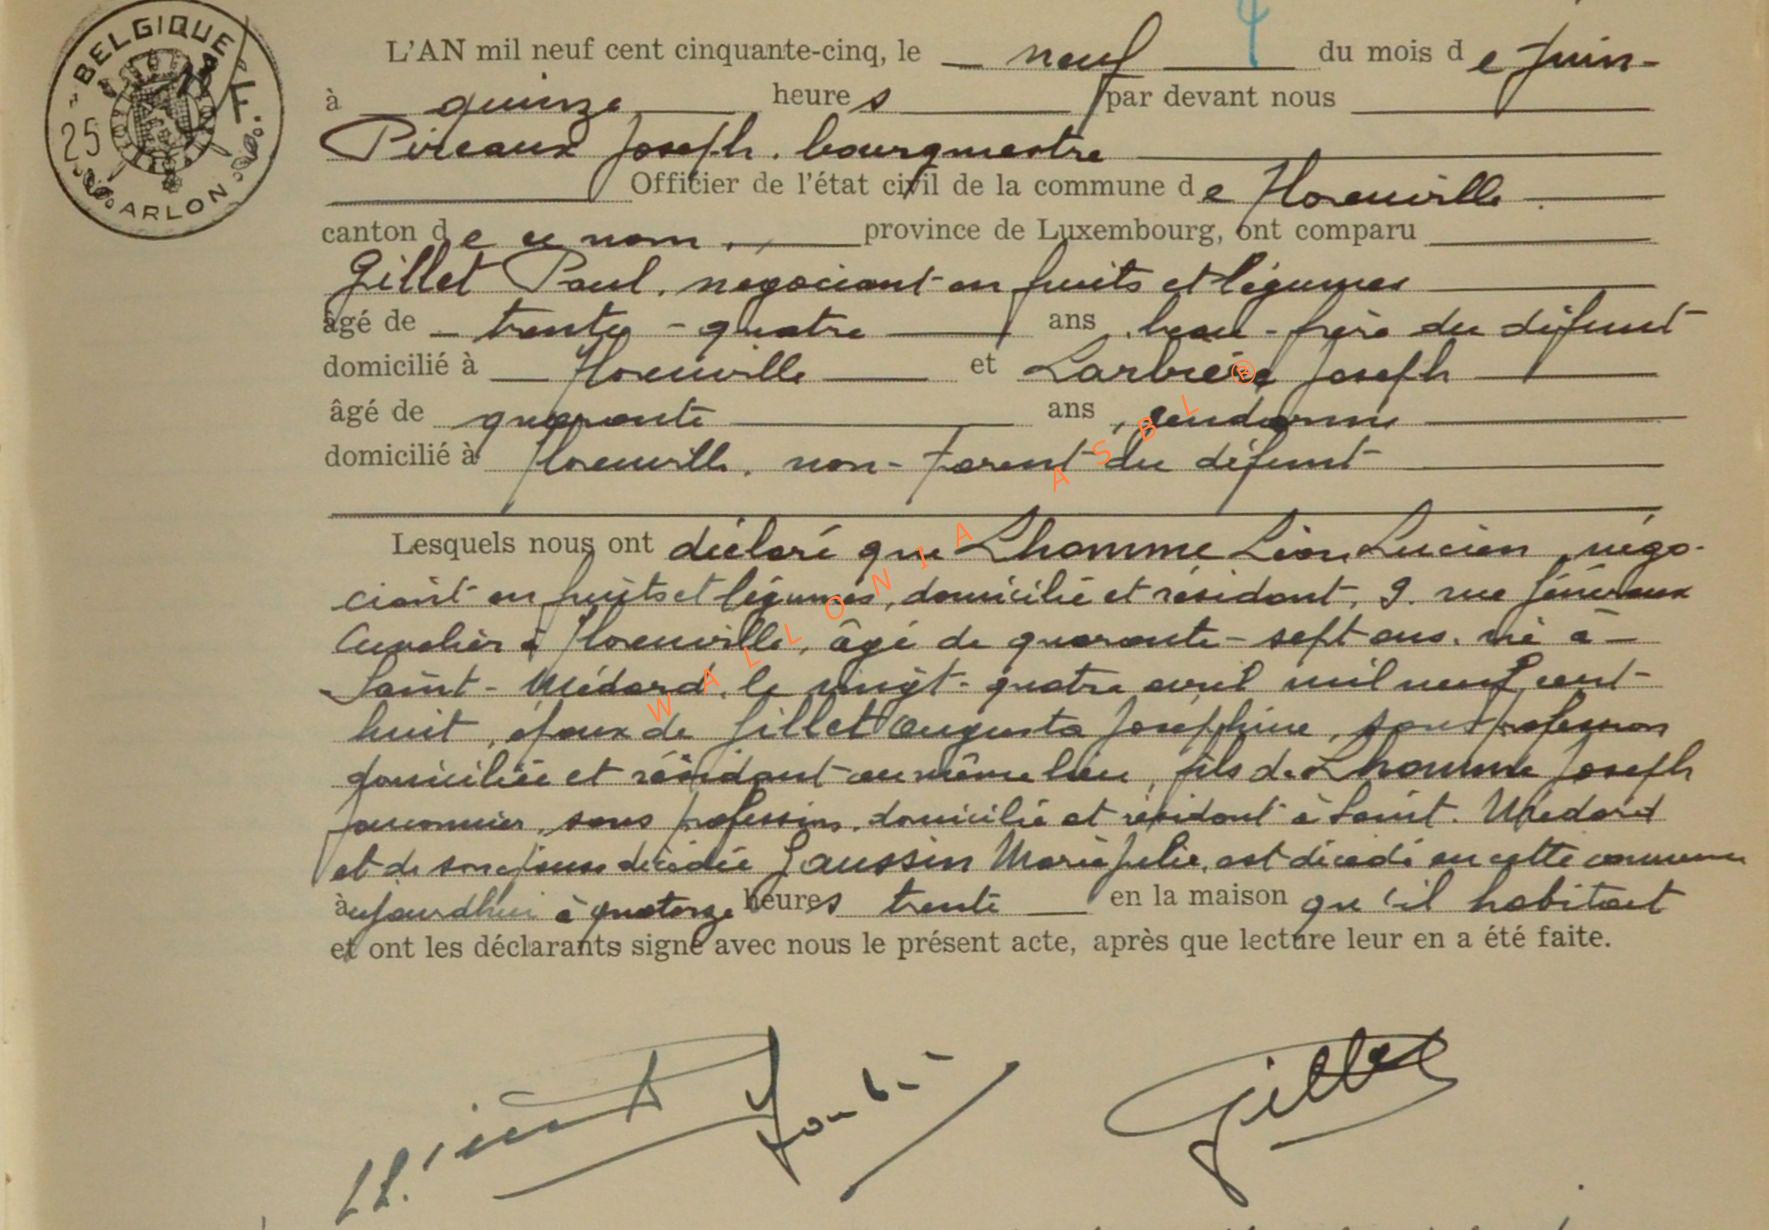 BELGIQUE
25 F.
ARLON
L'AN mil neuf cent cinquante-cinq, le neuf du mois de Juin
à quinze heures par devant nous
Pireaux Joseph, bourgmestre
Officier de l'état civil de la commune de Florenville
canton de ce nom, province de Luxembourg, ont comparu
Gillet Paul, négociant en fruits et légumes
âgé de trente-quatre ans, beau-frère du défunt
domicilié à Florenville et Joseph
âgé de quarante ans, gendarme
domicilié à Florenville, non-parent du défunt
Lesquels nous ont déclaré que Lhomme Léon Lucien, négo-
ciant en fruits et légumes, domicilié et résidant, 9, rue Généraux
Cuvelier à Florenville, âgé de quarante-sept ans, né à
Saint-Médard, le vingt-quatre avril mil neuf cent
huit, époux de Gillet Augusta Joséphine, sans profession
domiciliée et résidant au même lieu, fils de Lhomme Joseph
sans profession, domicilié et résidant à Saint-Médard
et de son épouse décédée Gaussin Marie Julie, est décédé en cette commune
aujourdhui à quatorze heures trente en la maison qu'il habitait
et ont les déclarants signé avec nous le présent acte, après que lecture leur en a été faite.
Gillet
WALLONIA ASBL ®